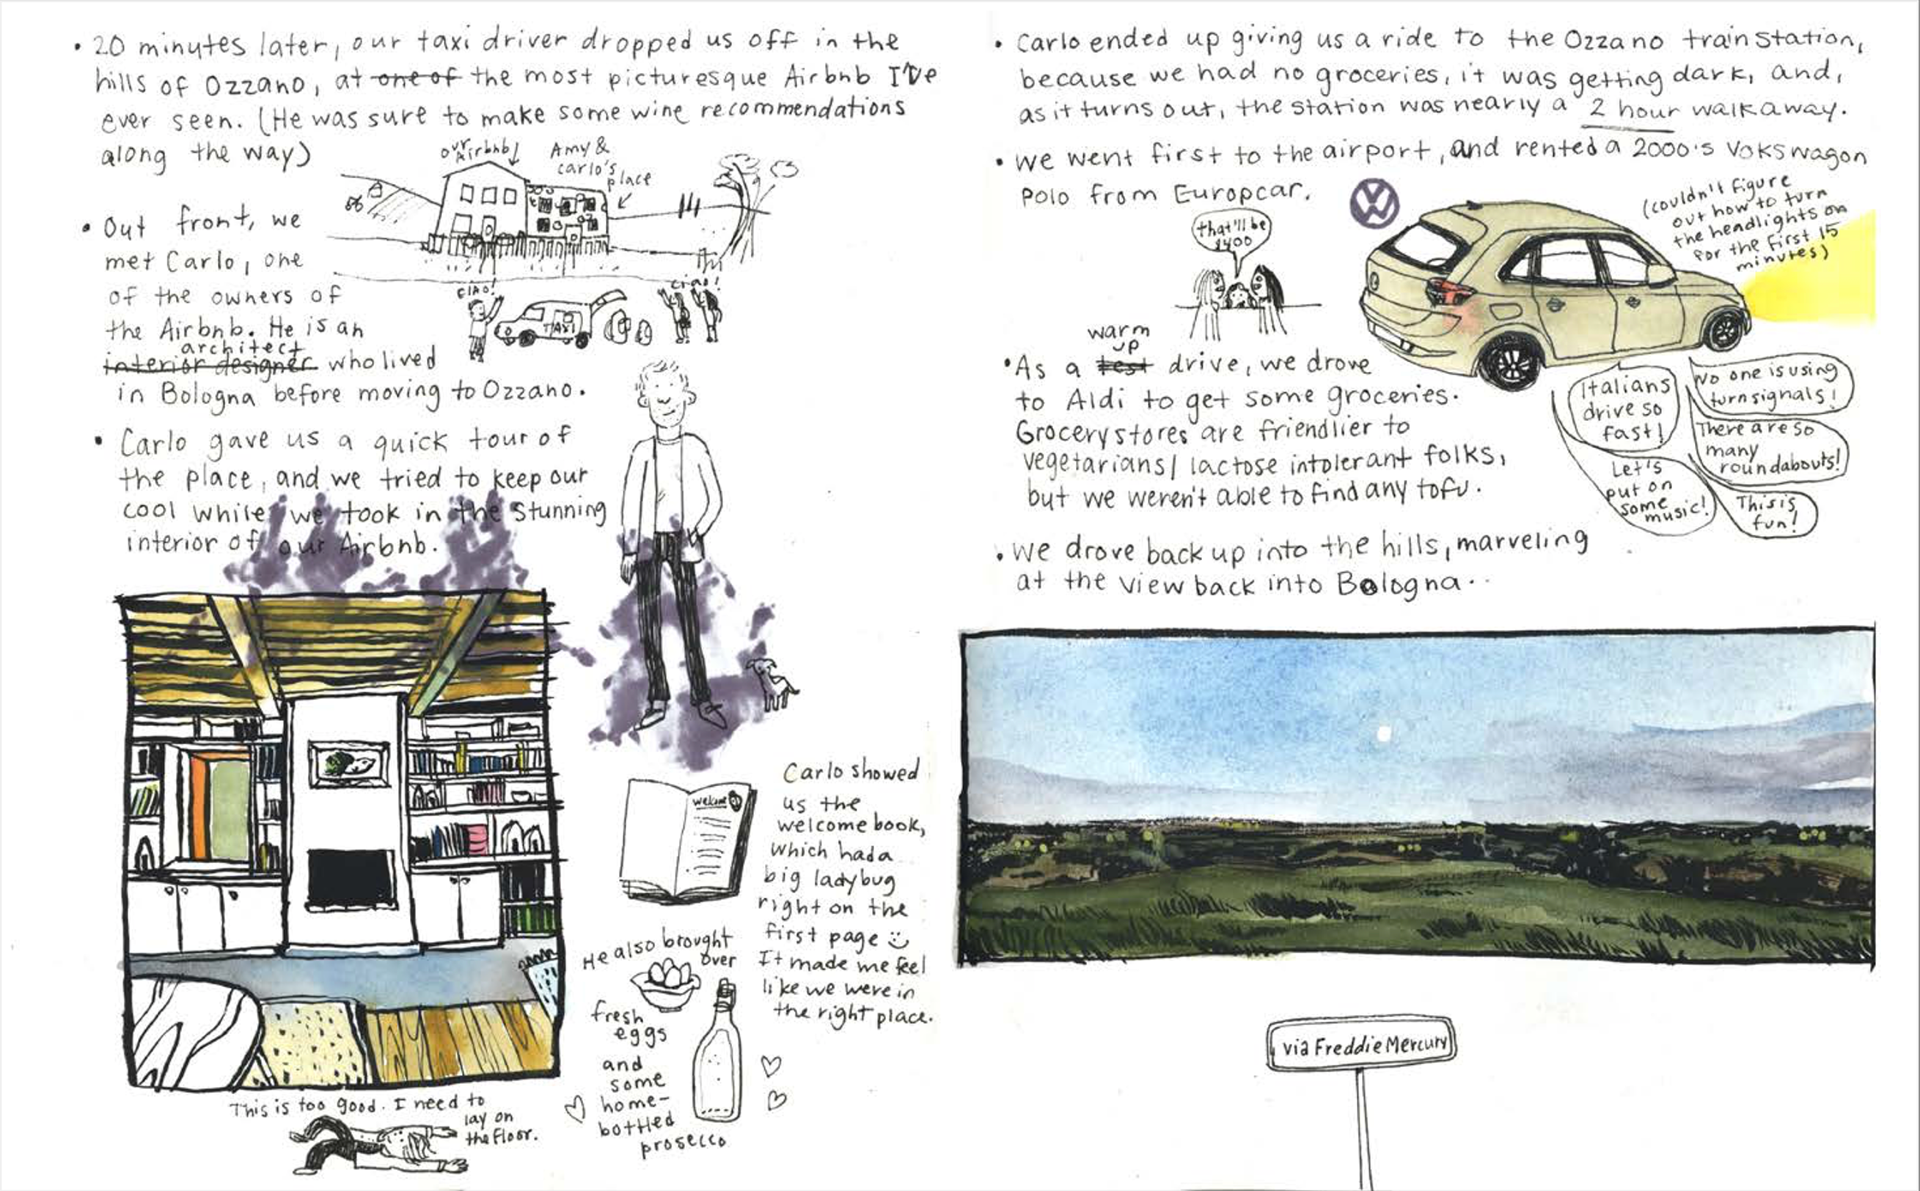 • 20 minutes later, our taxi driver dropped us off in the
hills of Ozzano, at one of the most picturesque Airbnb I've
ever seen. (He was sure to make some wine recommendations
along the way)
our Airbnb
Amy &
Carlo's
place
• Out front, we
met Carlo, one
of the owners of
the Airbnb. He is an
architect
interior designer who lived
in Bologna before moving to Ozzano.
CIAO!
TAXI
Ciao!
• Carlo gave us a quick tour of
the place, and we tried to keep our
cool while we took in the stunning
interior of our Airbnb.
Welcome
Carlo showed
us the
welcome book,
which had a
big ladybug
right on the
first page
It made me feel
like we were in
the right place.
He also brought
over
fresh
eggs
and
some
home-
bottled
prosecco
This is too good. I need to
lay on
the floor.
• Carlo ended up giving us a ride to the Ozzano train station,
because we had no groceries, it was getting dark, and,
as it turns out, the station was nearly a 2 hour walk away.
• We went first to the airport, and rented a 2000's Vokswagon
Polo from Europcar.
that'll be
$400
VW
(couldn't figure
out how to turn
the headlights on
for the first 15
minutes)
warm
up
• As a test drive, we drove
to Aldi to get some groceries.
Grocery stores are friendlier to
vegetarians/lactose intolerant folks,
but we weren't able to find any tofu.
Italians
drive so
fast!
No one is using
turn signals!
There are so
many
roundabouts!
Let's
put on
some
music!
This is
fun!
• We drove back up into the hills, marveling
at the view back into Bologna..
via Freddie Mercury